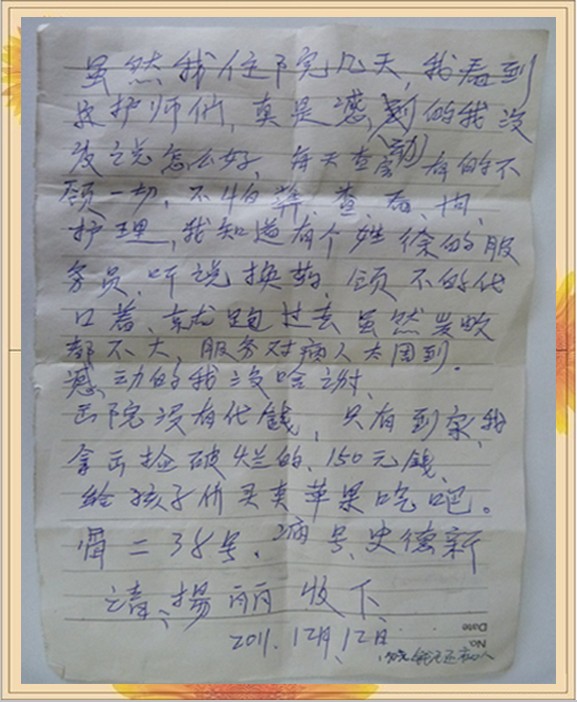 虽然我住下完几天,我看到
医护师们,真是感到的我没
没说怎么好,每天查
动
房的不
顾一切,不怕
查、看、问、
护理,我知道有个姓徐的服
务员、听说换药,顾不的代
口着、就跑过去虽然岁数
都不大,服务对病人太周到.
感动的我没啥谢、
出院没有代钱,只有到家我
拿出捡破烂的、150元钱、
给孩子们买卖苹果吃吧。
骨二38号、病号、史德新
请、扬丽丽收下
2011.12月、12日
Date
No.